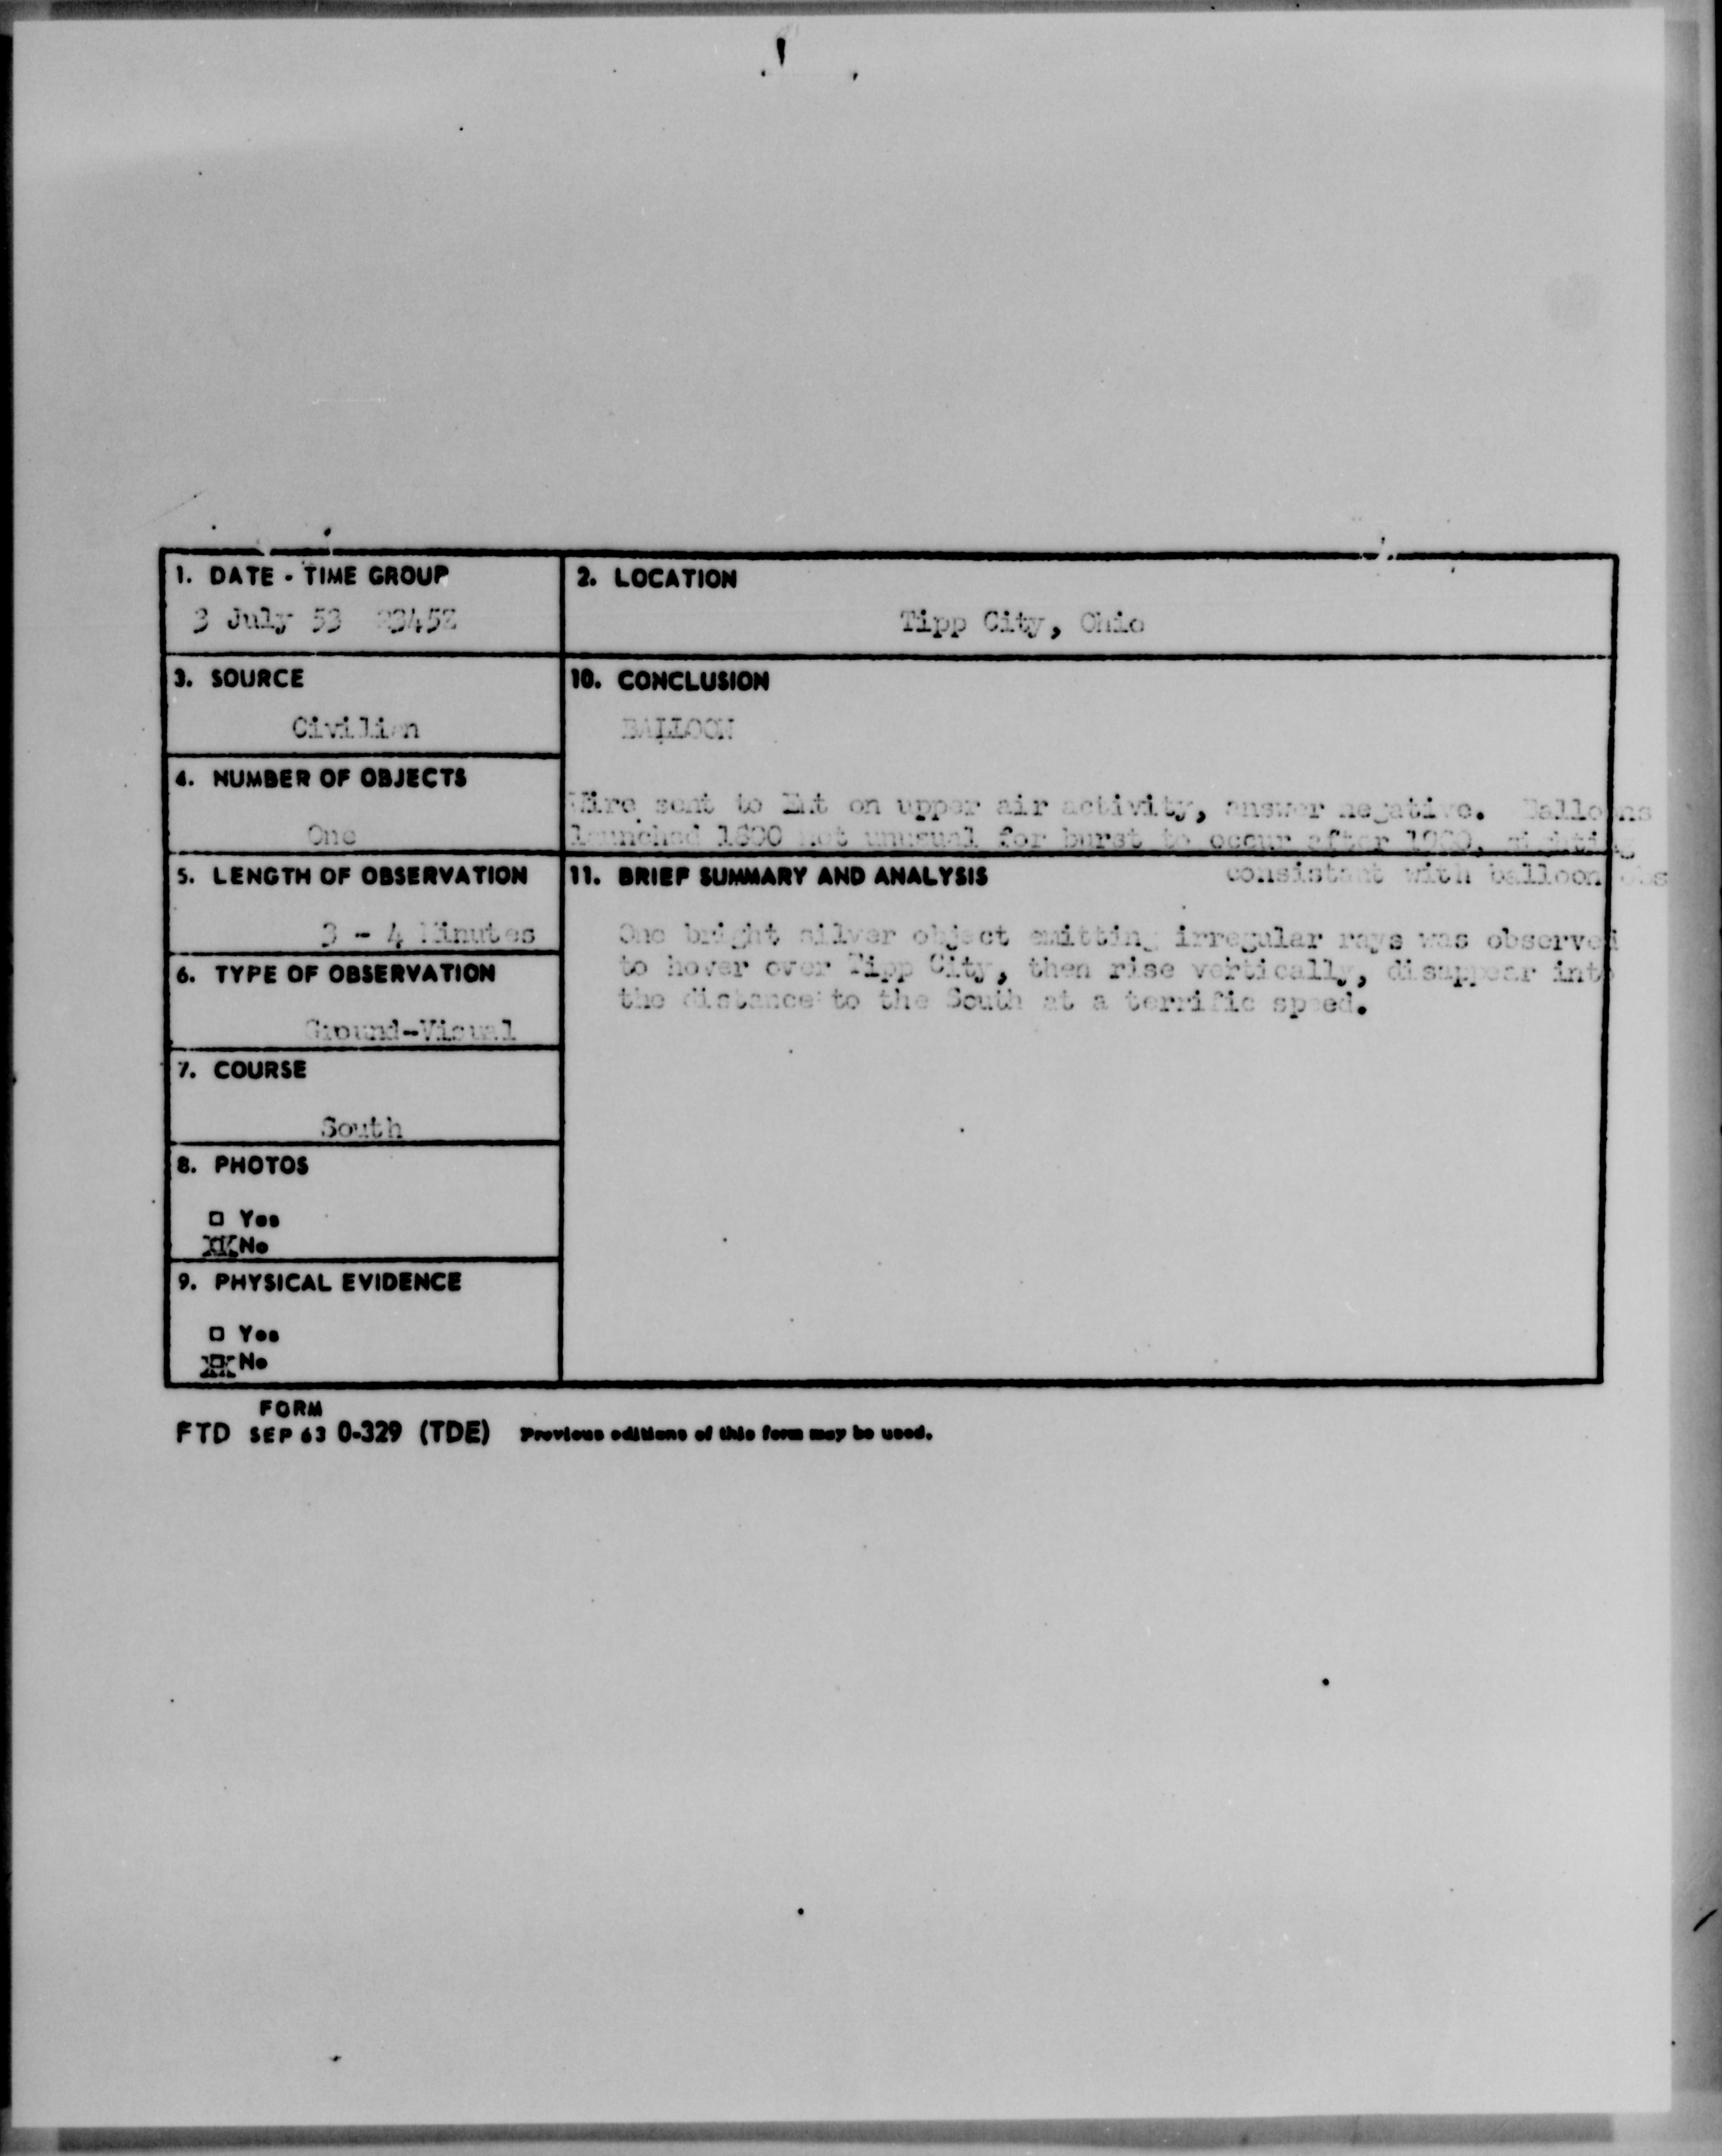 1. DATE - TIME GROUP
3 July 53 2345Z
2. LOCATION
Tipp City, Ohio
3. SOURCE
Civilian
10. CONCLUSION
BALLOON
Wire sent to Ent on upper air activity, answer negative. Balloons
launched 1600 not unusual for burst to occur after 1900, sighting
consistant with balloon obs
4. NUMBER OF OBJECTS
One
5. LENGTH OF OBSERVATION
3 - 4 Minutes
11. BRIEF SUMMARY AND ANALYSIS
One bright silver object emitting irregular rays was observed
to hover over Tipp City, then rise vertically, disappear into
the distance to the South at a terrific speed.
6. TYPE OF OBSERVATION
Ground-Visual
7. COURSE
South
8. PHOTOS
□ Yes
XX No
9. PHYSICAL EVIDENCE
□ Yes
XX No
FORM
FTD SEP 63 0-329 (TDE) Previous editions of this form may be used.